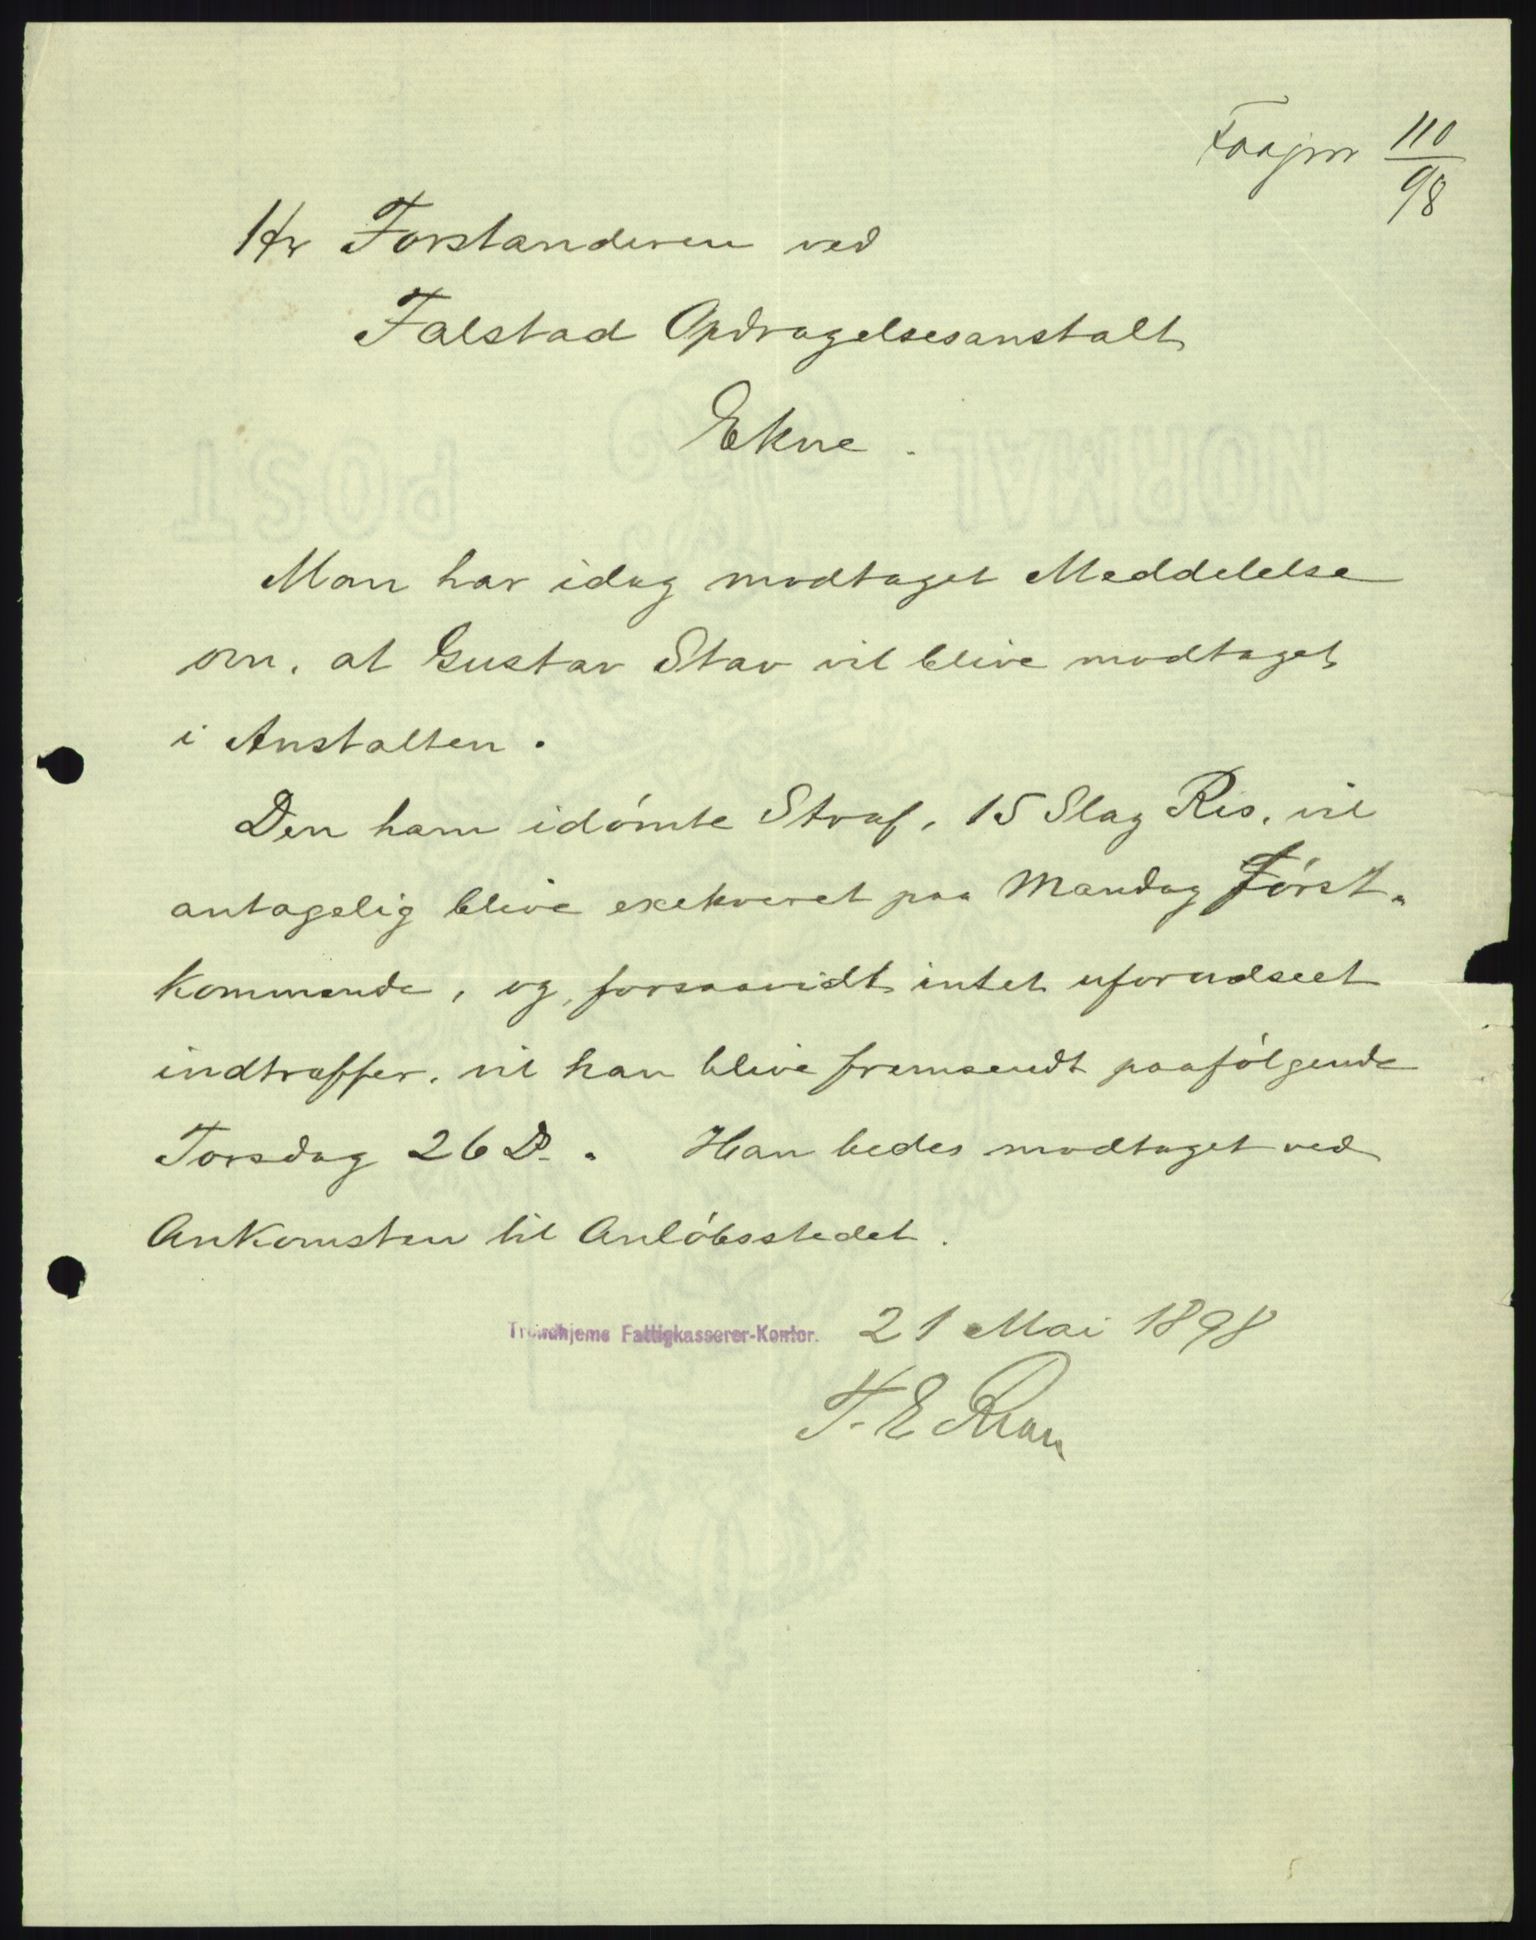 110
98
Hr Forstanderen ved
Falstad Opdragelsesanstalt
Ekne.
NORMAL POST
Man har idag modtaget Meddelelse
om, at Gustav Stav vil blive modtaget
i Anstalten.
Den ham idømte Straf, 15 Slag Ris, vil
antagelig blive exekveret paa Mandag Først-
kommende, og, forsaavidt intet uforudseet
indtræffer, vil han blive fremsendt paafølgende
Torsdag 26 Ds. Han bedes modtaget ved
Ankomsten til Anløbsstedet.
Trondhjems Fattigkasserer-Kontor. 21 Mai 1898
T. E.